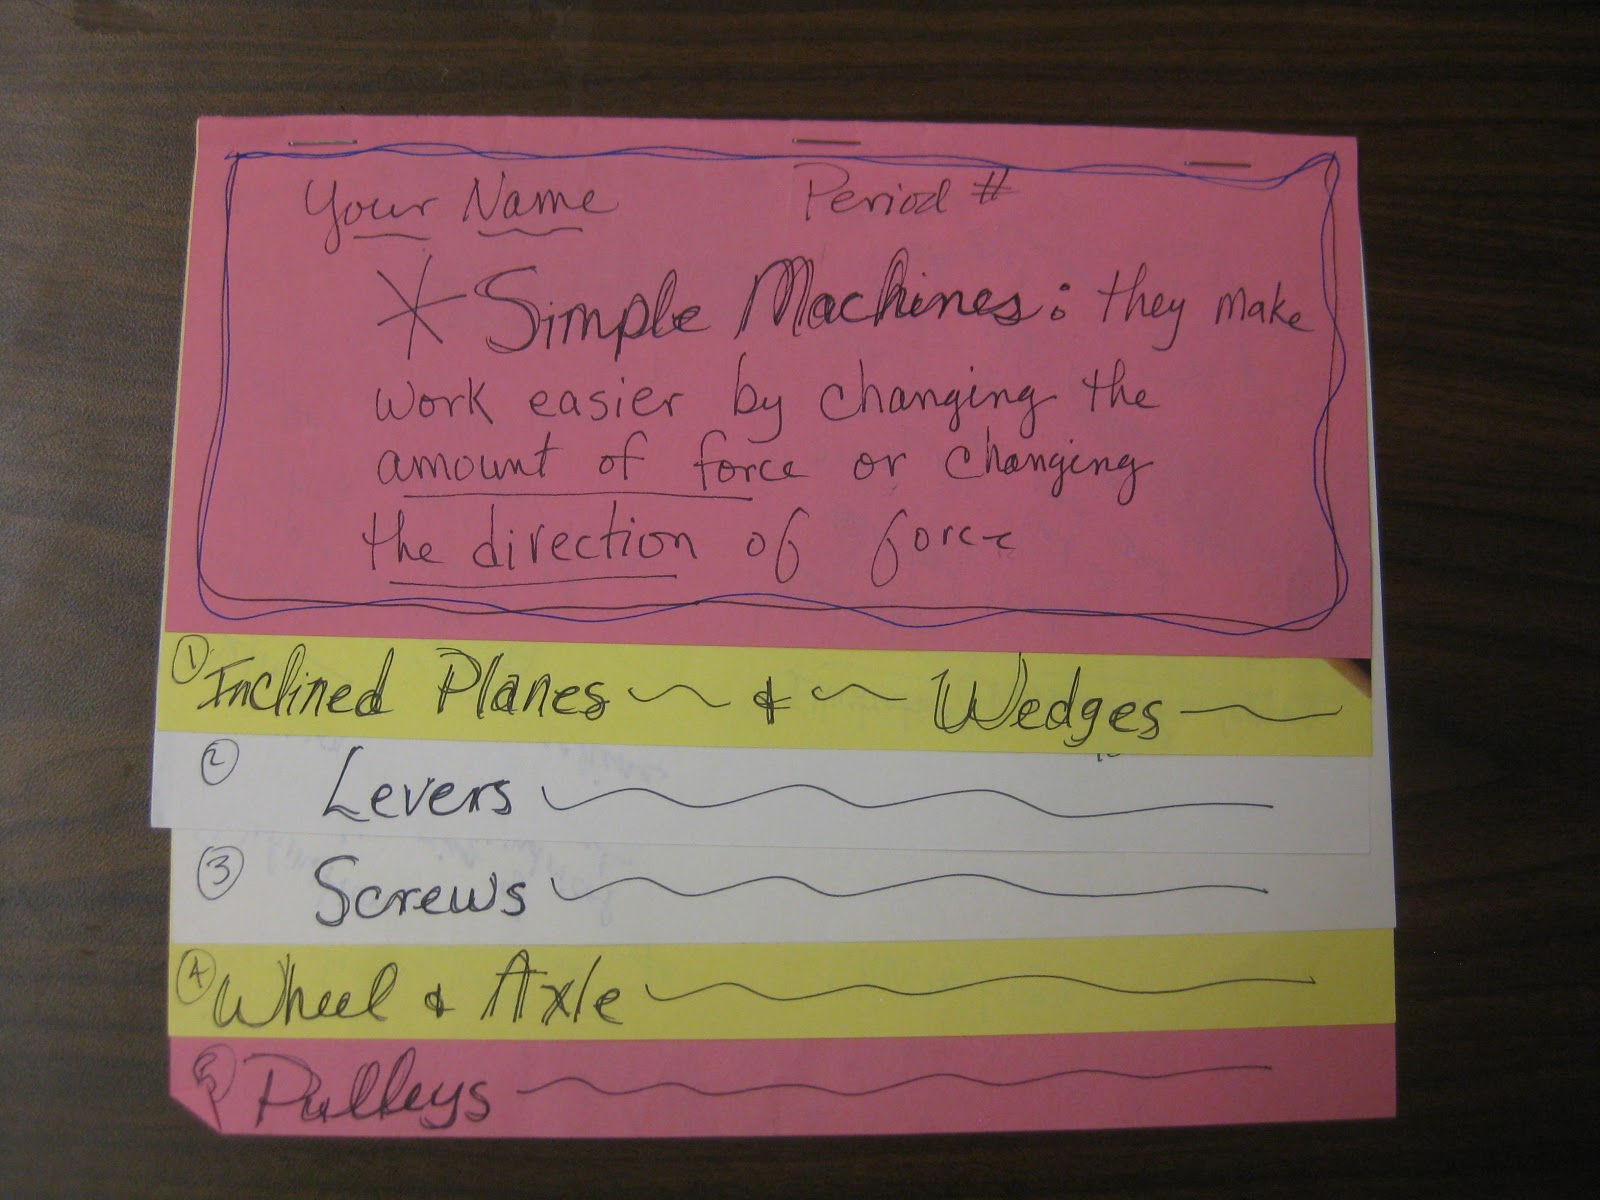 Your Name Period #
* Simple Machines: they make
work easier by changing the
amount of force or changing
the direction of force
① Inclined Planes ~ & ~ Wedges
② Levers
③ Screws
④ Wheel & Axle
⑤ Pulleys